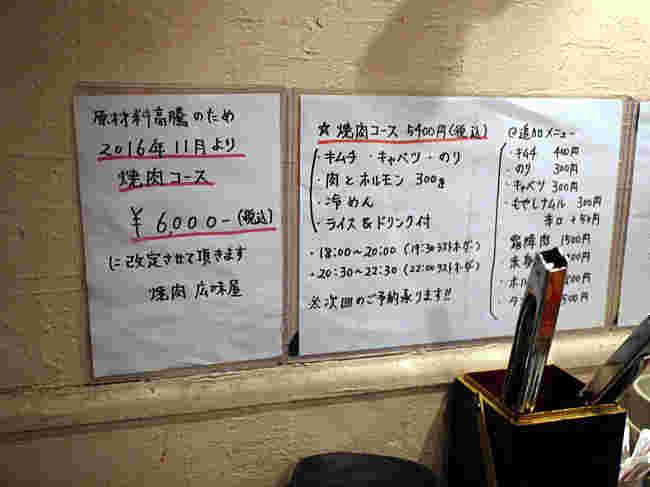 原材料高騰のため
2016年11月より
焼肉コース
¥6,000-(税込)
に改定させて頂きます
焼肉 広味屋
☆焼肉コース 5400円(税込)
・キムチ・キャベツ・のり
・肉とホルモン 300g
・冷めん
・ライス&ドリンク付
・18:00~20:00 (19:30ラストオーダー)
・20:30~22:30 (22:00ラストオーダー)
※次回のご予約承ります!!
@追加メニュー
・キムチ 400円
・のり 300円
・キャベツ 300円
・もやしナムル 300円
辛口+50円
霜降肉 1500円
・ホル 500円
・タ 500円